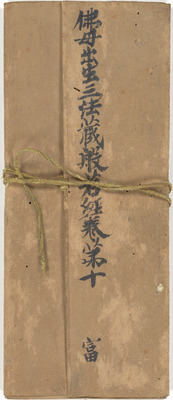 佛母出生三法藏般若經卷第十
富